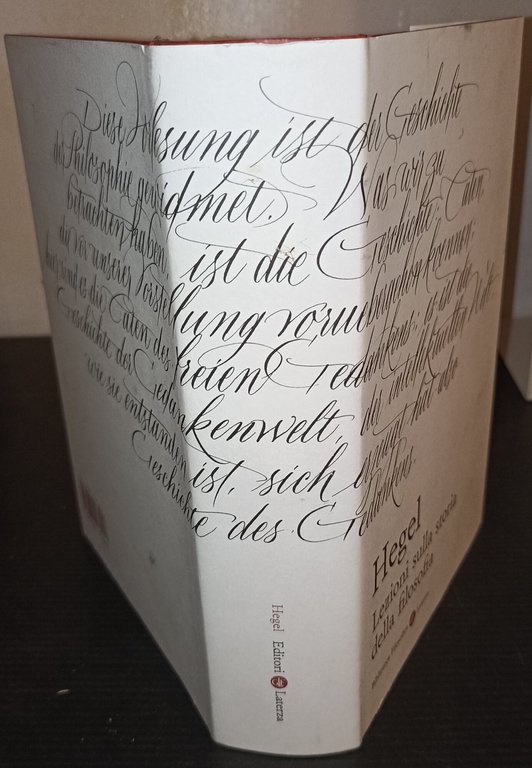 Diese Vorlesung ist der Geschichte
der Philosophie gewidmet. Was wir zu
betrachten haben, ist die Geschichte, Taten,
die vor unserer Vorstellung vorübergehen
hier sind es die Taten des freien Gedankens; es ist die
Geschichte der Gedankenwelt, der intellektuellen Welt
wie sie entstanden ist, sich erzeugt hat
Geschichte des Gedankens.
Hegel
Lezioni sulla storia
della filosofia
Editori Laterza
Hegel Editori Laterza